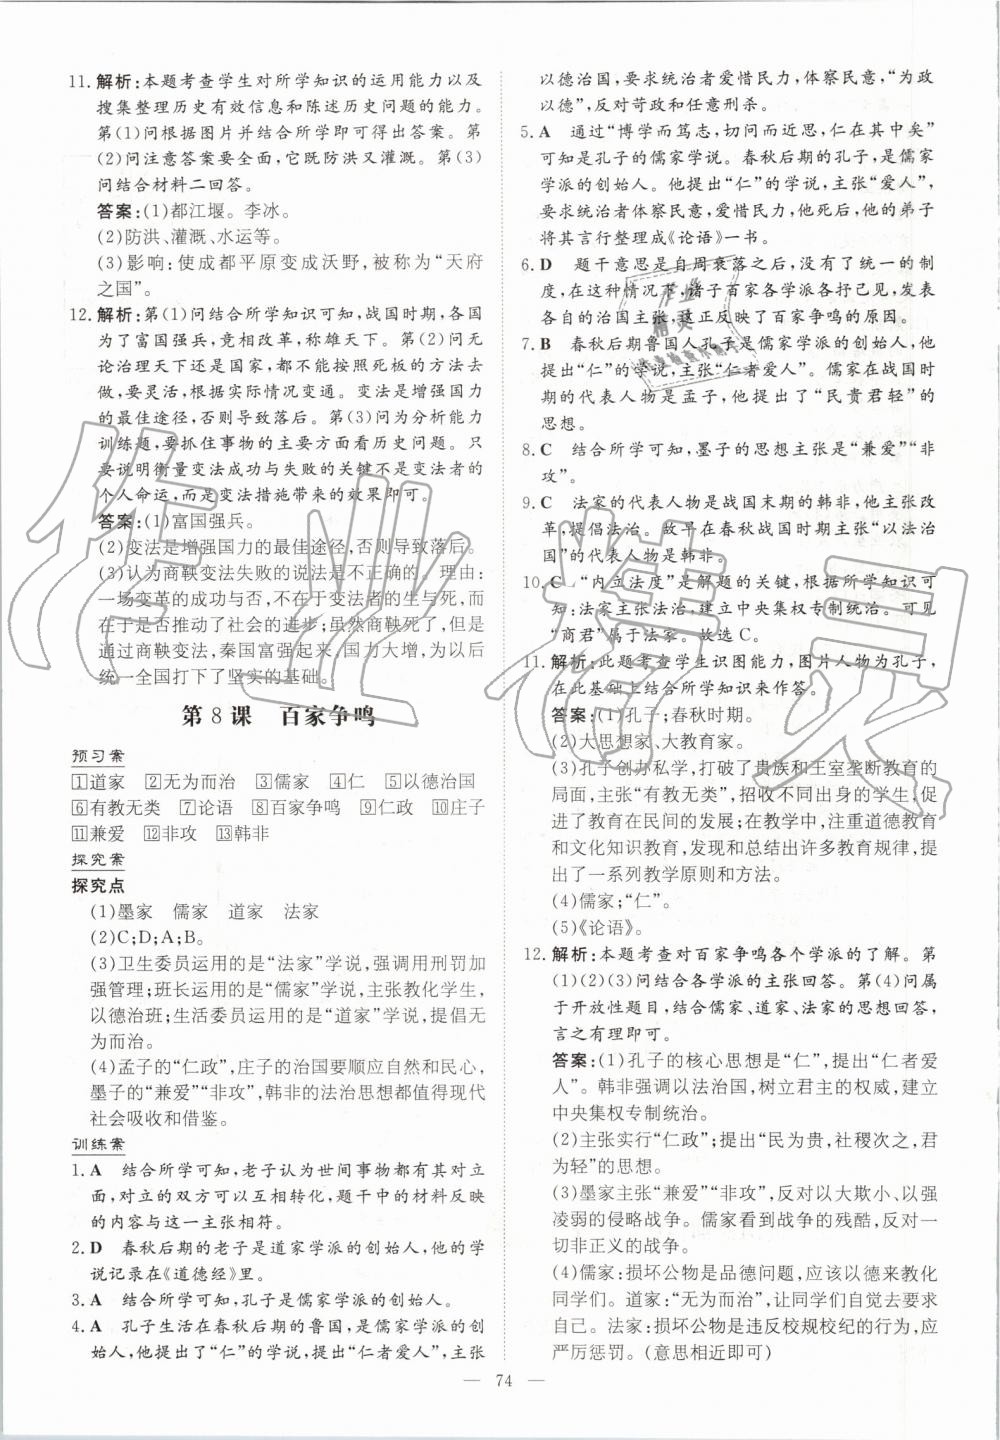 11. 解析:本题考查学生对所学知识的运用能力以及
搜集整理历史有效信息和陈述历史问题的能力。
第(1)问根据图片并结合所学即可得出答案。第
(2)问注意答案要全面,它既防洪又灌溉。第(3)
问结合材料二回答。
答案:(1)都江堰。李冰。
(2)防洪、灌溉、水运等。
(3)影响:使成都平原变成沃野,被称为“天府
之国”。
12. 解析:第(1)问结合所学知识可知,战国时期,各国
为了富国强兵,竞相改革,称雄天下。第(2)问无
论治理天下还是国家,都不能按照死板的方法去
做,要灵活,根据实际情况变通。变法是增强国力
的最佳途径,否则导致落后。第(3)问为分析能力
训练题,要抓住事物的主要方面看历史问题。只
要说明衡量变法成功与失败的关键不是变法者的
个人命运,而是变法措施带来的效果即可。
答案:(1)富国强兵。
(2)变法是增强国力的最佳途径,否则导致落后。
(3)认为商鞅变法失败的说法是不正确的。理由:
一场变革的成功与否,不在于变法者的生与死,而
在于是否推动了社会的进步;虽然商鞅死了,但是
通过商鞅变法,秦国富强起来,国力大增,为以后
统一全国打下了坚实的基础。
第 8 课 百家争鸣
预习案
1道家 2无为而治 3儒家 4仁 5以德治国
6有教无类 7论语 8百家争鸣 9仁政 10庄子
11兼爱 12非攻 13韩非
探究案
探究点
(1)墨家 儒家 道家 法家
(2)C;D;A;B。
(3)卫生委员运用的是“法家”学说,强调用刑罚加
强管理;班长运用的是“儒家”学说,主张教化学生,
以德治班;生活委员运用的是“道家”学说,提倡无
为而治。
(4)孟子的“仁政”,庄子的治国要顺应自然和民心,
墨子的“兼爱”“非攻”,韩非的法治思想都值得现代
社会吸收和借鉴。
训练案
1. A 结合所学可知,老子认为世间事物都有其对立
面,对立的双方可以互相转化,题干中的材料反映
的内容与这一主张相符。
2. D 春秋后期的老子是道家学派的创始人,他的学
说记录在《道德经》里。
3. A 结合所学可知,孔子是儒家学派的创始人。
4. A 孔子生活在春秋后期的鲁国,是儒家学派的创
始人,他提出了“仁”的学说,提出“仁者爱人”,主张
以德治国,要求统治者爱惜民力,体察民意,“为政
以德”,反对苛政和任意刑杀。
5. A 通过“博学而笃志,切问而近思,仁在其中矣”
可知是孔子的儒家学说。春秋后期的孔子,是儒家
学派的创始人。他提出“仁”的学说,主张“爱人”,
要求统治者体察民意,爱惜民力,他死后,他的弟子
将其言行整理成《论语》一书。
6. D 题干意思是自周衰落之后,没有统一的制
度,在这种情况下,诸子百家各学派各抒己见,发表
各自的治国主张,这正反映了百家争鸣的原因。
7. B 春秋后期鲁国人孔子是儒家学派的创始人,他
提出“仁”的学说,主张“仁者爱人”。儒家在战国时
期的代表人物是孟子,他提出了“民贵君轻”的
思想。
8. C 结合所学可知,墨子的思想主张是“兼爱”“非
攻”。
9. C 法家的代表人物是战国末期的韩非,他主张改
革,提倡法治。故早在春秋战国时期主张“以法治
国”的代表人物是韩非。
10. C “内立法度”是解题的关键,根据所学知识可
知:法家主张法治,建立中央集权专制统治。可见
“商君”属于法家。故选 C。
11. 解析:此题考查学生识图能力,图片人物为孔子,
在此基础上结合所学知识来作答。
答案:(1)孔子;春秋时期。
(2)大思想家、大教育家。
(3)孔子创办私学,打破了贵族和王室垄断教育的
局面,主张“有教无类”,招收不同出身的学生,促
进了教育在民间的发展;在教学中,注重道德教育
和文化知识教育,发现和总结出许多教育规律,提
出了一系列教学原则和方法。
(4)儒家;“仁”。
(5)《论语》。
12. 解析:本题考查对百家争鸣各个学派的了解。第
(1)(2)(3)问结合各学派的主张回答。第(4)问属
于开放性题目,结合儒家、道家、法家的思想回答,
言之有理即可。
答案:(1)孔子的核心思想是“仁”,提出“仁者爱
人”。韩非强调以法治国,树立君主的权威,建立
中央集权专制统治。
(2)主张实行“仁政”;提出“民为贵,社稷次之,君
为轻”的思想。
(3)墨家主张“兼爱”“非攻”,反对以大欺小、以强
凌弱的侵略战争。儒家看到战争的残酷,反对一
切非正义的战争。
(4)儒家:损坏公物是品德问题,应该以德来教化
同学们。道家:“无为而治”,让同学们自觉去要求
自己。法家:损坏公物是违反校规校纪的行为,应
严厉惩罚。(意思相近即可)
— 74 —
作业精灵